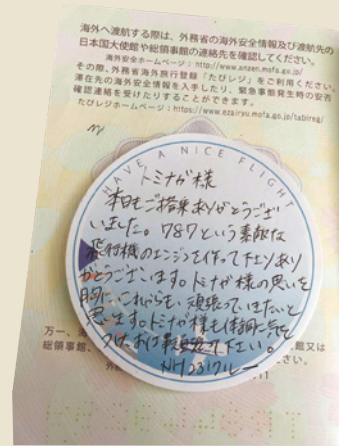 海外へ渡航する際は、外務省の海外安全情報及び渡航先の
日本国大使館や総領事館の連絡先を確認してください。
海外安全ホームページ：http://www.anzen.mofa.go.jp/
その際、外務省海外旅行登録「たびレジ」をご利用ください。
滞在先の海外安全情報を入手したり、緊急事態発生時の安否
確認連絡を受けたりすることができます。
たびレジホームページ：https://www.ezairyu.mofa.go.jp/tabireg/
HAVE A NICE FLIGHT
トミナガ様
本日もご搭乗ありがとうござ
いました。787という素敵な
飛行機のエンジンを作って下さりあり
がとうございます。トミナガ様の思いを
胸に、これからも頑張っていきたいと
思います。トミナガ様も体調に気を
つけ、お過ごし下さい。
NH231クルー
万一、
総領事館、
館又は
さい。